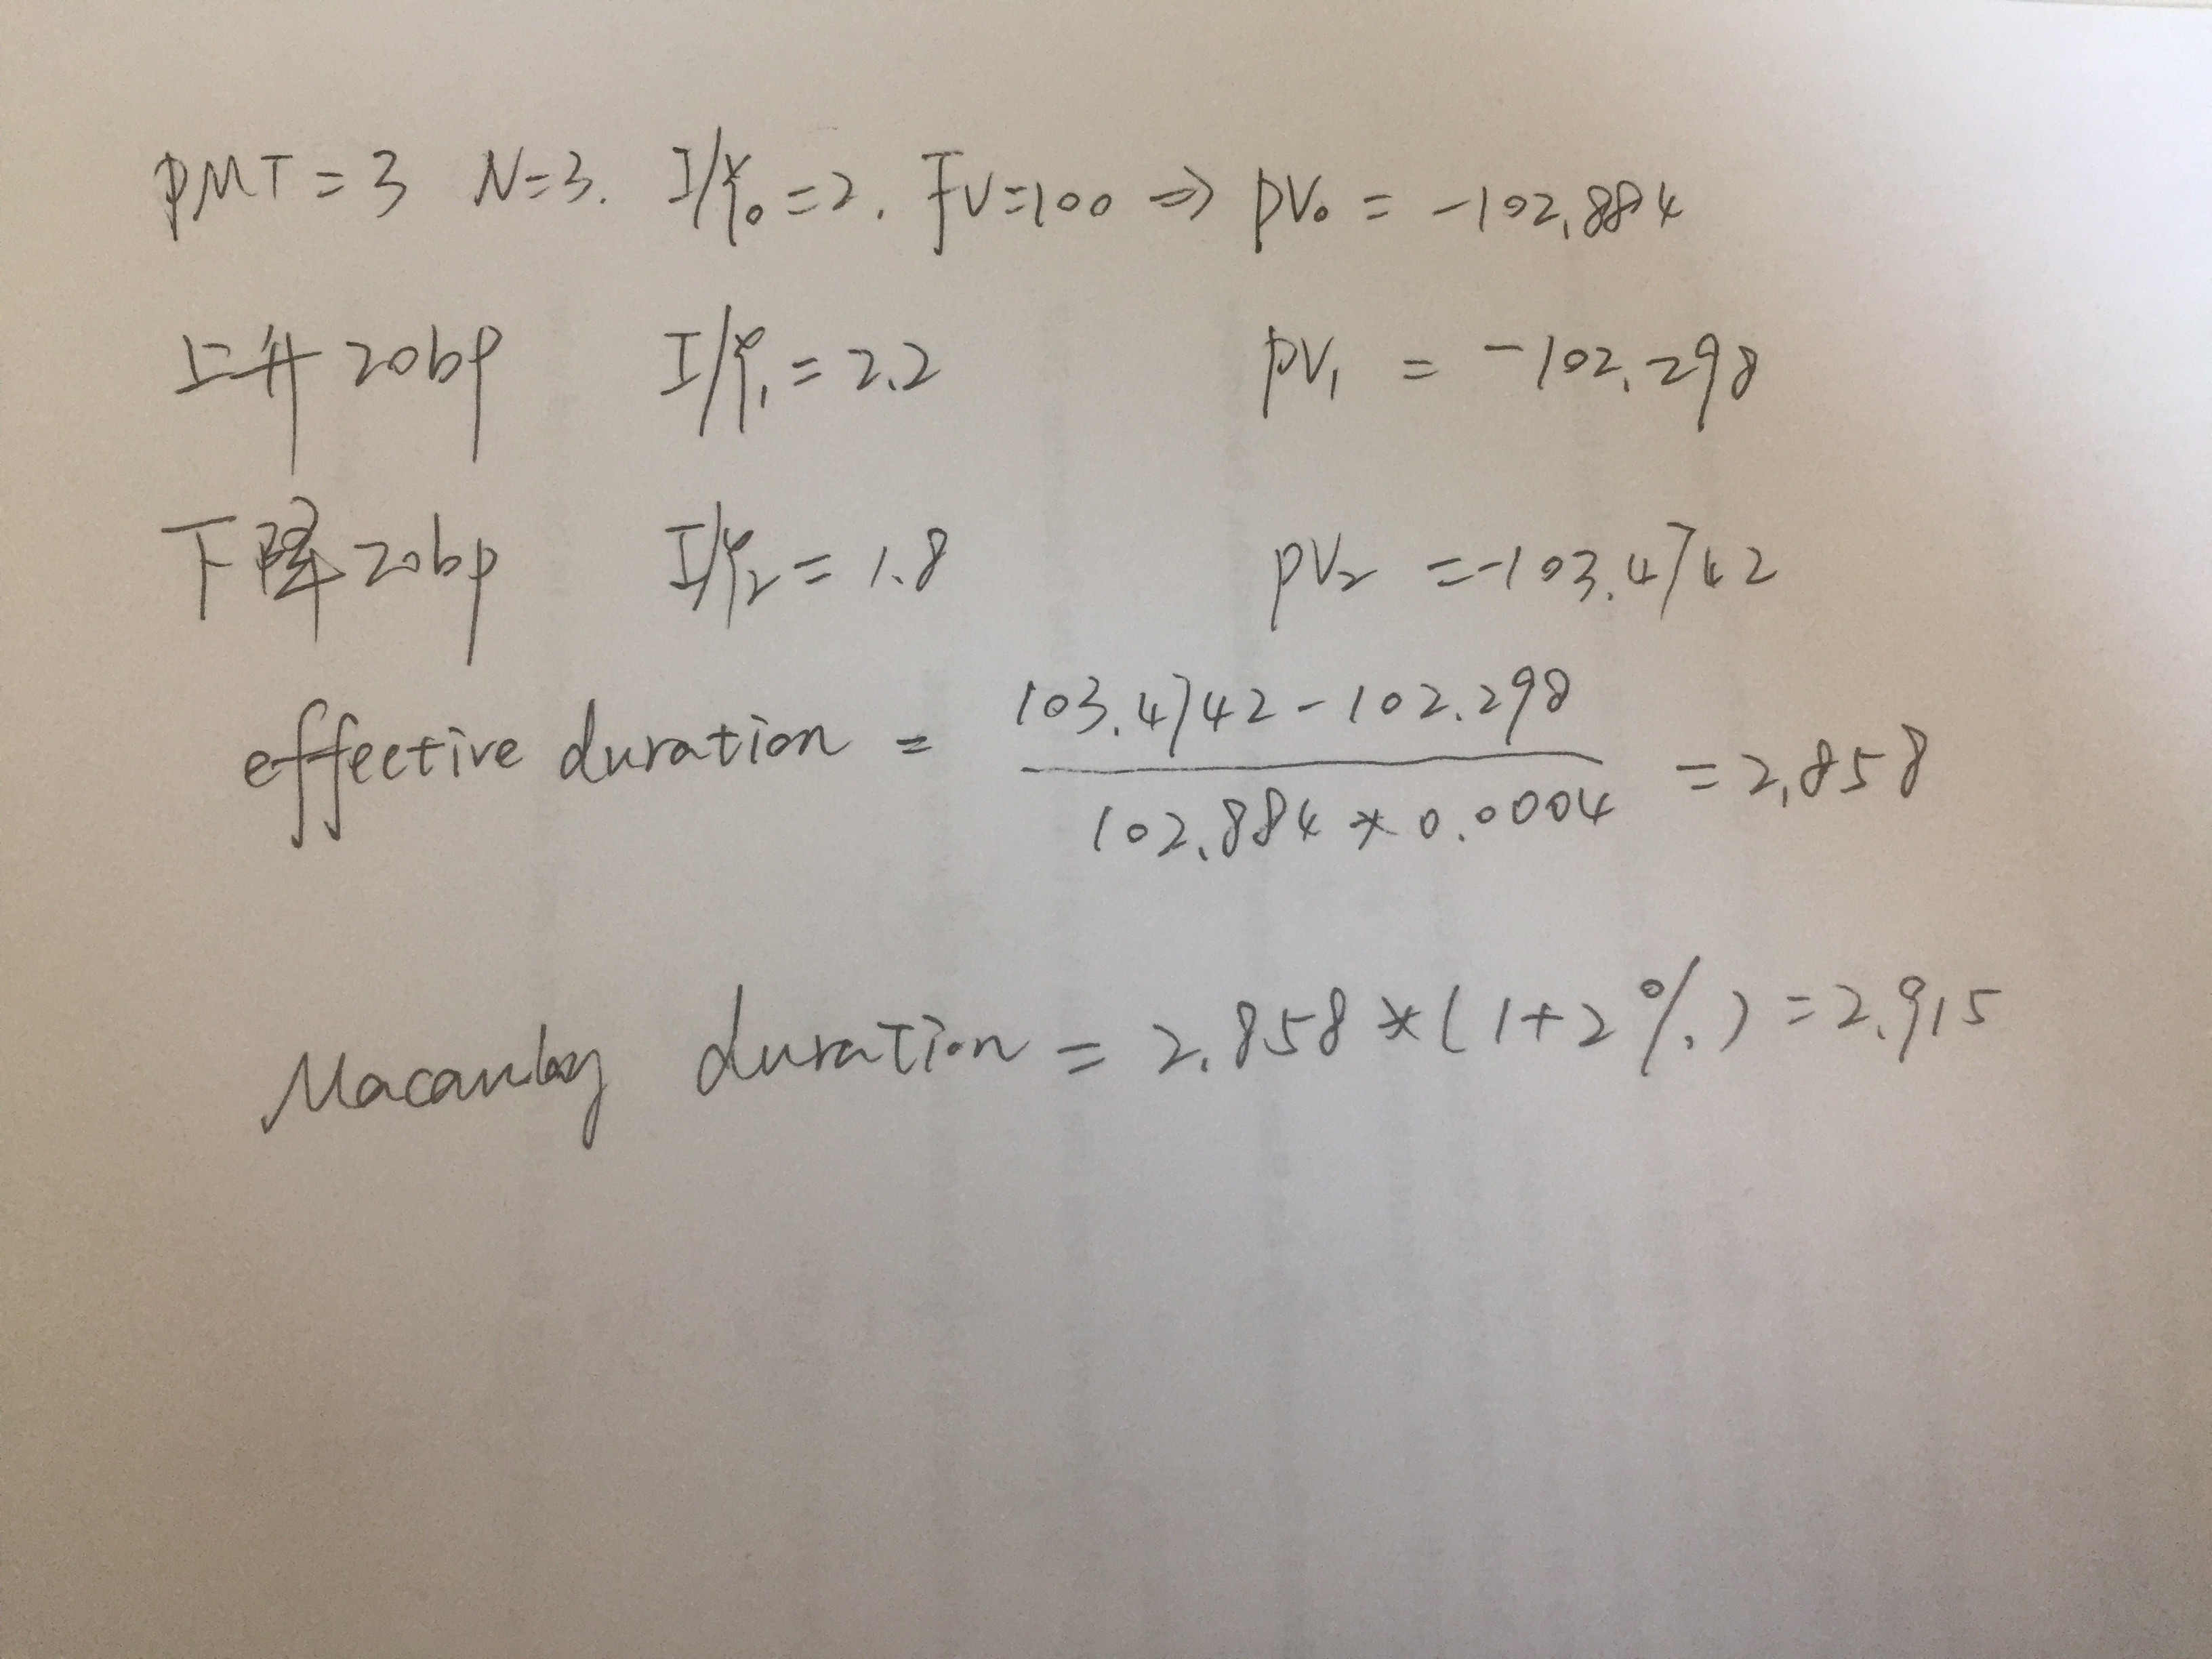 PMT = 3 N=3. I/Y₀ = 2. FV=100 ⇒ PV₀ = -102.884
上升20bp I/Y₁ = 2.2 PV₁ = -102.298
下降20bp I/Y₂ = 1.8 PV₂ = -103.4742
effective duration = (103.4742 - 102.298) / (102.884 * 0.0004) = 2.858
Macaulay duration = 2.858 * (1+2%) = 2.915